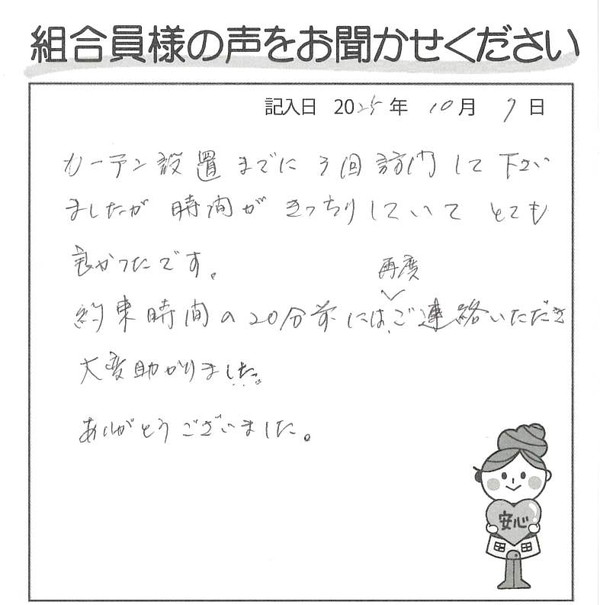 組合員様の声をお聞かせください
記入日 2025年 10月 7日
カーテン設置までに3回訪問して下さい
ましたが時間がきっちりしていてとても
良かったです。
再度
約束時間の20分前には、ご連絡いただき
大変助かりました。
ありがとうございました。
安心